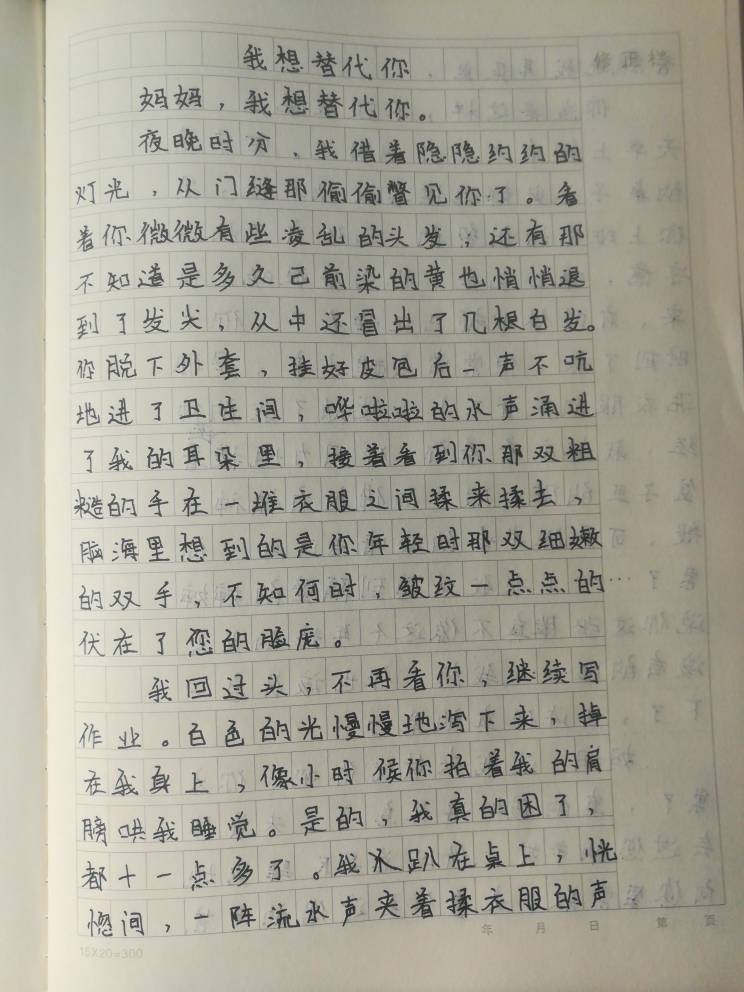 我想替代你.
修正栏
妈妈，我想替代你。
夜晚时分，我借着隐隐约约的
灯光，从门缝那偷偷瞥见你了。看
着你微微有些凌乱的头发，还有那
不知道是多久己前染的黄也悄悄退
到了发尖，从中还冒出了几根白发。
你脱下外套，挂好皮包后一声不吭
地进了卫生间，哗啦啦的水声涌进
了我的耳朵里，接着看到你那双粗
糙的手在一堆衣服之间揉来揉去，
脑海里想到的是你年轻时那双细嫩
的双手，不知何时，皱纹一点点的
伏在了您的脸庞。
我回过头，不再看你，继续写
作业。白色的光慢慢地泻下来，掉
在我身上，像小时候你拍着我的肩
膀哄我睡觉。是的，我真的困了，
都十一点多了。我趴在桌上，恍
惚间，一阵流水声夹着揉衣服的声
年 月 日 第 页
15X20=300